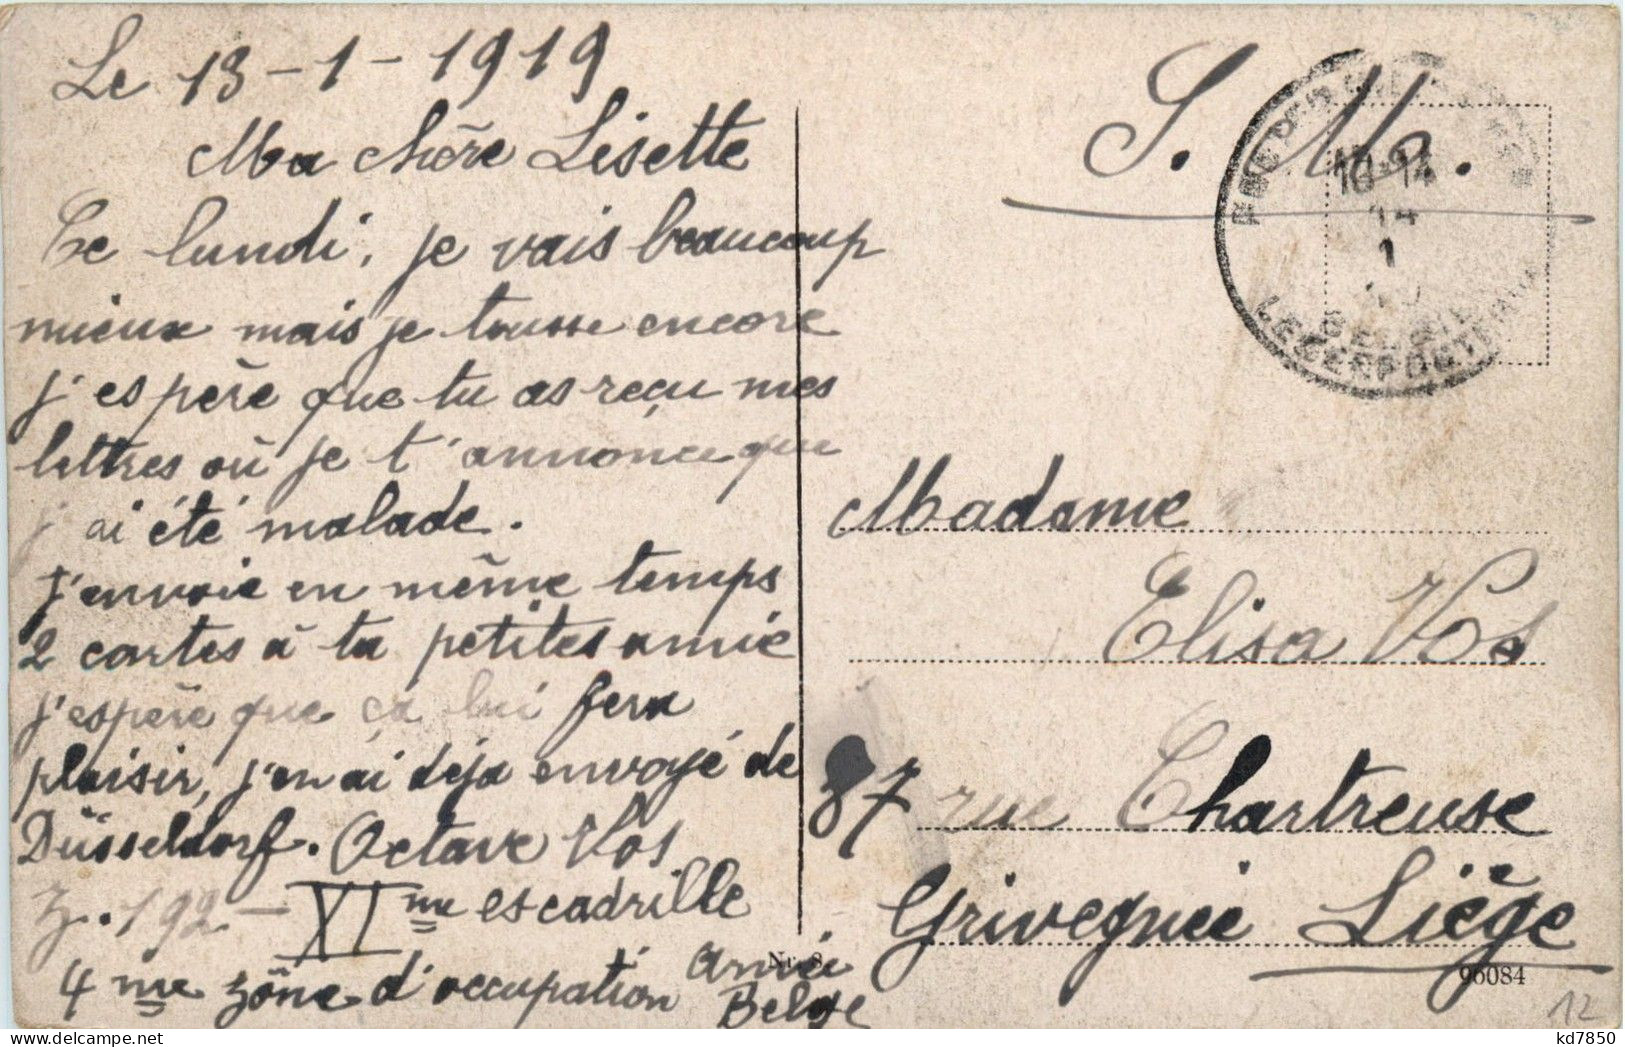 Le 13-1-1919
Ma chère Lisette
Ce lundi, je vais beaucoup
mieux mais je tousse encore
j'espère que tu as reçu mes
lettres où je t'annonce que
j'ai été malade.
J'envoie en même temps
2 cartes à ta petites amie
j'espère que ça lui fera
plaisir, j'en ai déja envoyé de
Düsseldorf. Octave Vos
Z.192 - XI me escadrille
4 me zône d'occupation Armée
Belge
S. M.
14
1
BELGIE
LEGERPOSTERIJ
Madame
Elisa Vos
37 rue Chartreuse
Grivegnée Liège
Nr. 8.
96084
12
kd7850